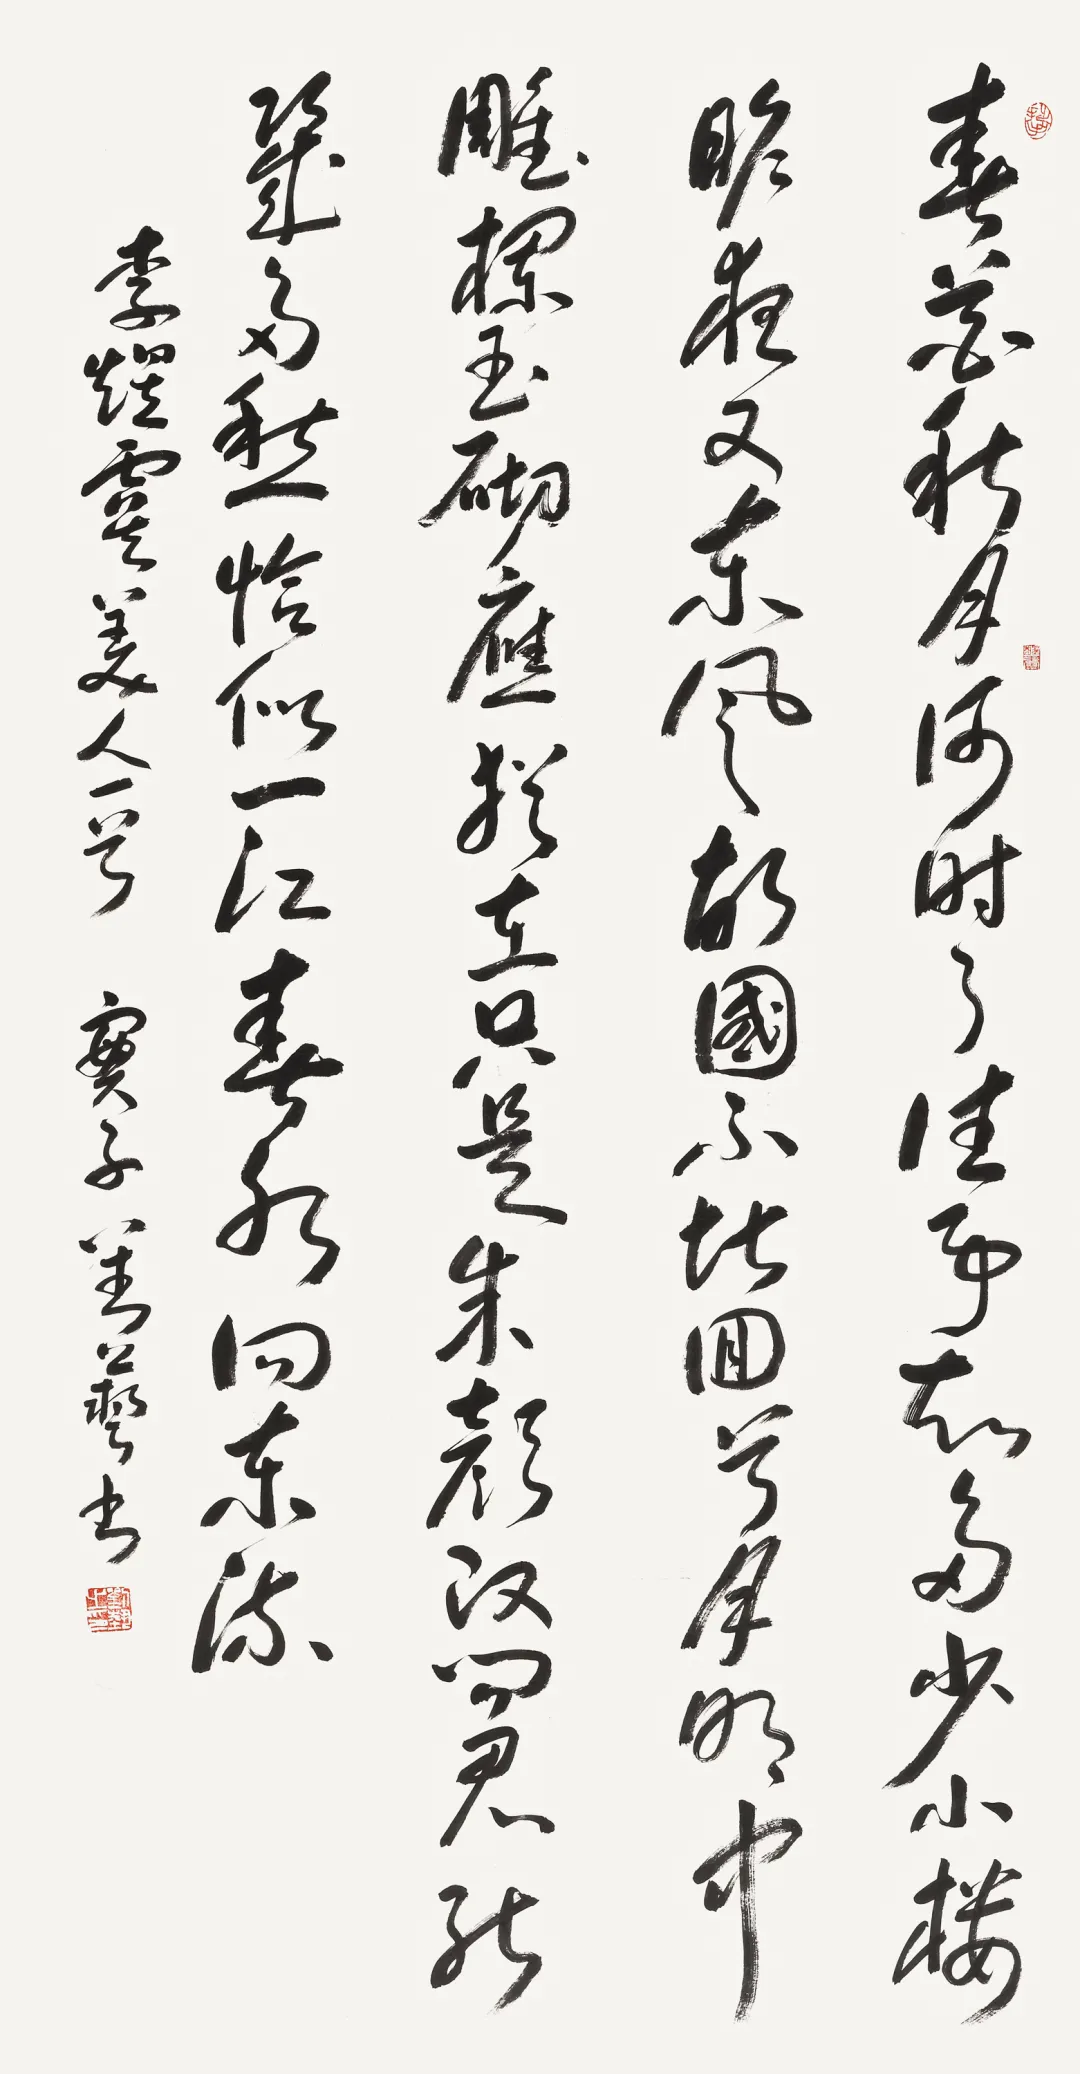 春花秋月何时了往事知多少小楼
昨夜又东风故國不堪回首月明中
雕欄玉砌應猶在只是朱顔改问君能
幾多愁恰似一江春水向东流
李煜虞美人一首 子 藝书